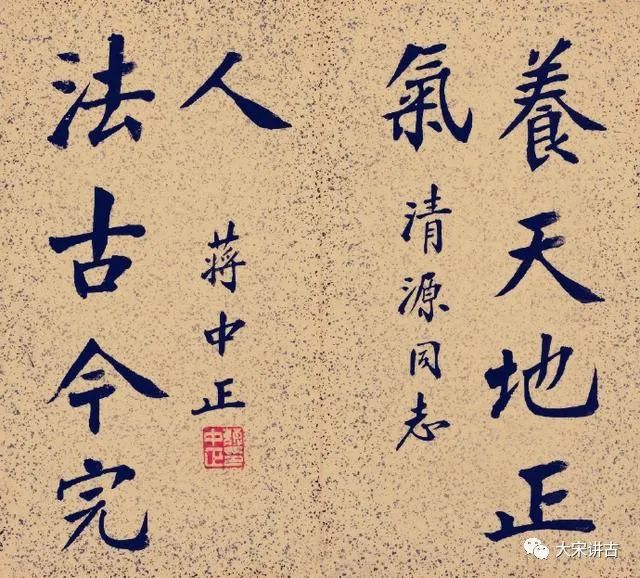 養天地正
氣
清源同志
法古今完
人
蔣中正
大宋讲古